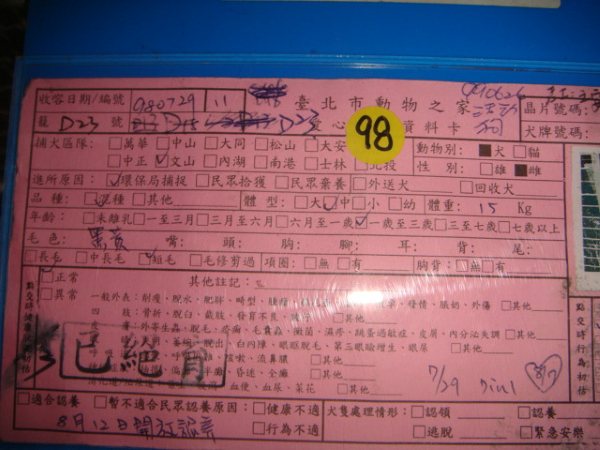 收容日期/編號 980729 11 臺北市動物之家 晶片號碼:
籠 D23 號 D23 愛心 98 資料卡 犬牌號碼:
捕犬區隊: □萬華 □中山 □大同 □松山 □大安 動物別: ■犬 □貓
□中正 ☑文山 □內湖 □南港 □士林 □北投 性別: □雄 ■雌
進所原因: ☑環保局捕捉 □民眾拾獲 □民眾棄養 □外送犬 □回收犬
品種: ☑混種 □其他 體型: □大 ☑中 □小 □幼 體重: 15 Kg
年齡: □未離乳 □一至三月 □三月至六月 □六月至一歲 ☑一歲至三歲 □三至七歲 □七歲以上
毛色: 黑黃 嘴: 頭: 胸: 腳: 耳: 背: 尾:
□長毛 □中長毛 ☑短毛 □毛修剪過 項圈: □無 □有 胸背: □無 □有
☑正常 其他註記:
□異常
一般外表: 削瘦、脫水、肥胖、畸型、腫瘤 發情、脹奶、外傷 □其他
四肢: 骨折、脫臼、截肢、發育不良 □其他
外寄生蟲、脫毛、疥癬、毛囊蟲、黴菌、濕疹、跳蚤過敏症、皮屑、內分泌失調 □其他
脫出、白內障、眼眶脫毛、第三眼瞼增生、眼屎 □其他
咳嗽、流鼻膿 □其他
昏迷、全癱 □其他
血便、血尿、菜花 □其他
已絕育
7/29
點交時健康初估
點交時行為初估
□適合認養 □暫不適合民眾認養原因: □健康不適 犬隻處理情形: □認領 □認養
8月12日開放認養 □行為不適 □逃脫 □緊急安樂